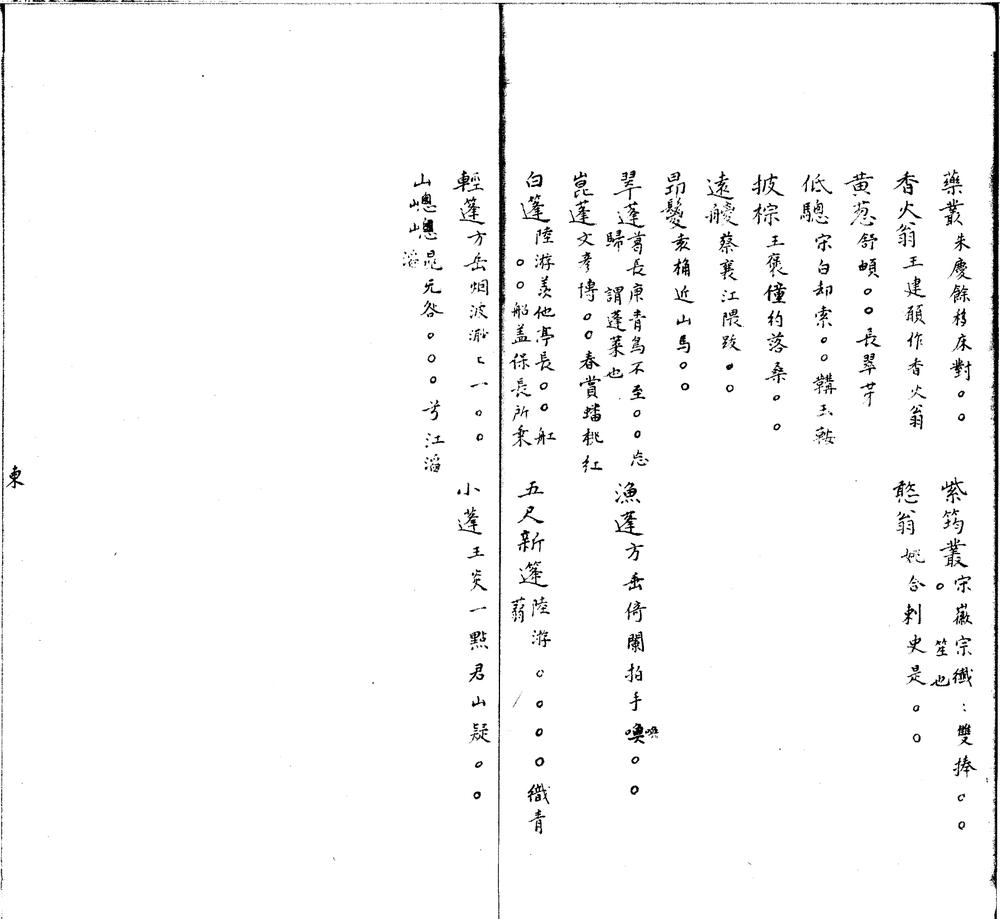 藥叢朱慶餘移床對。。
紫筠叢宋徽宗纖：雙捧。。。笙也
香火翁王建願作香火翁
憨翁姚合刺史是。。
黃葱舒頔。。長翠芽
低驄宋白却索。。鞲玉鞍
披棕王褒僮約落桑。。
遠艭蔡襄江隈跤。。
昂鬉袁桷近山馬。。
翠蓬葛長庚青鳥不至。。忘歸謂蓬萊也
漁蓬方岳倚闌拍手喚。。
崑蓬文彥博。。春賞蟠桃紅
白篷陸游羨他亭長。。舡。。船盖保長所乗
五尺新篷陸游。。。。織青蒻
輕蓬方岳烟波渺〻一。。
小蓬王炎一點君山疑。。
山嵷嵷晁元咎。。。兮江滔滔
東